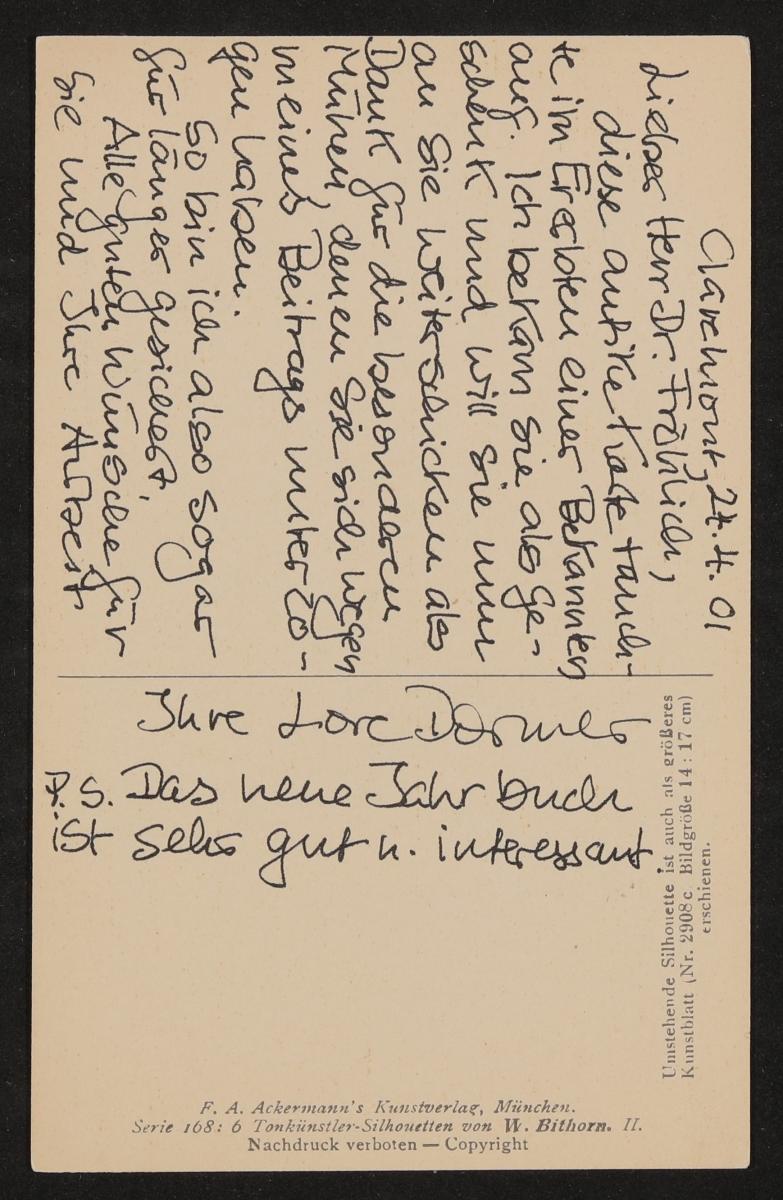 Claremont, 24.4.01
Lieber Herr Dr. Fröhlich,
diese antike Karte tauch-
te im Eresloten einer Bekannten
auf. Ich bekam sie als Ge-
schenk und will sie nun
an Sie weiterschicken als
Dank für die besonderen
Mühen, denen Sie sich wegen
meines Beitrags unterzo-
gen haben.
So bin ich also sogar
für länger gesichert.
Alle guten Wünsche für
Sie und Ihre Arbeit
Ihre Lore Dormer
P.S. Das neue Jahrbuch
ist sehr gut u. interessant
Umstehende Silhouette ist auch als größeres
Kunstblatt (Nr. 2908c Bildgröße 14 : 17 cm)
erschienen.
F. A. Ackermann's Kunstverlag, München.
Serie 168: 6 Tonkünstler-Silhouetten von W. Bithorn. II.
Nachdruck verboten — Copyright